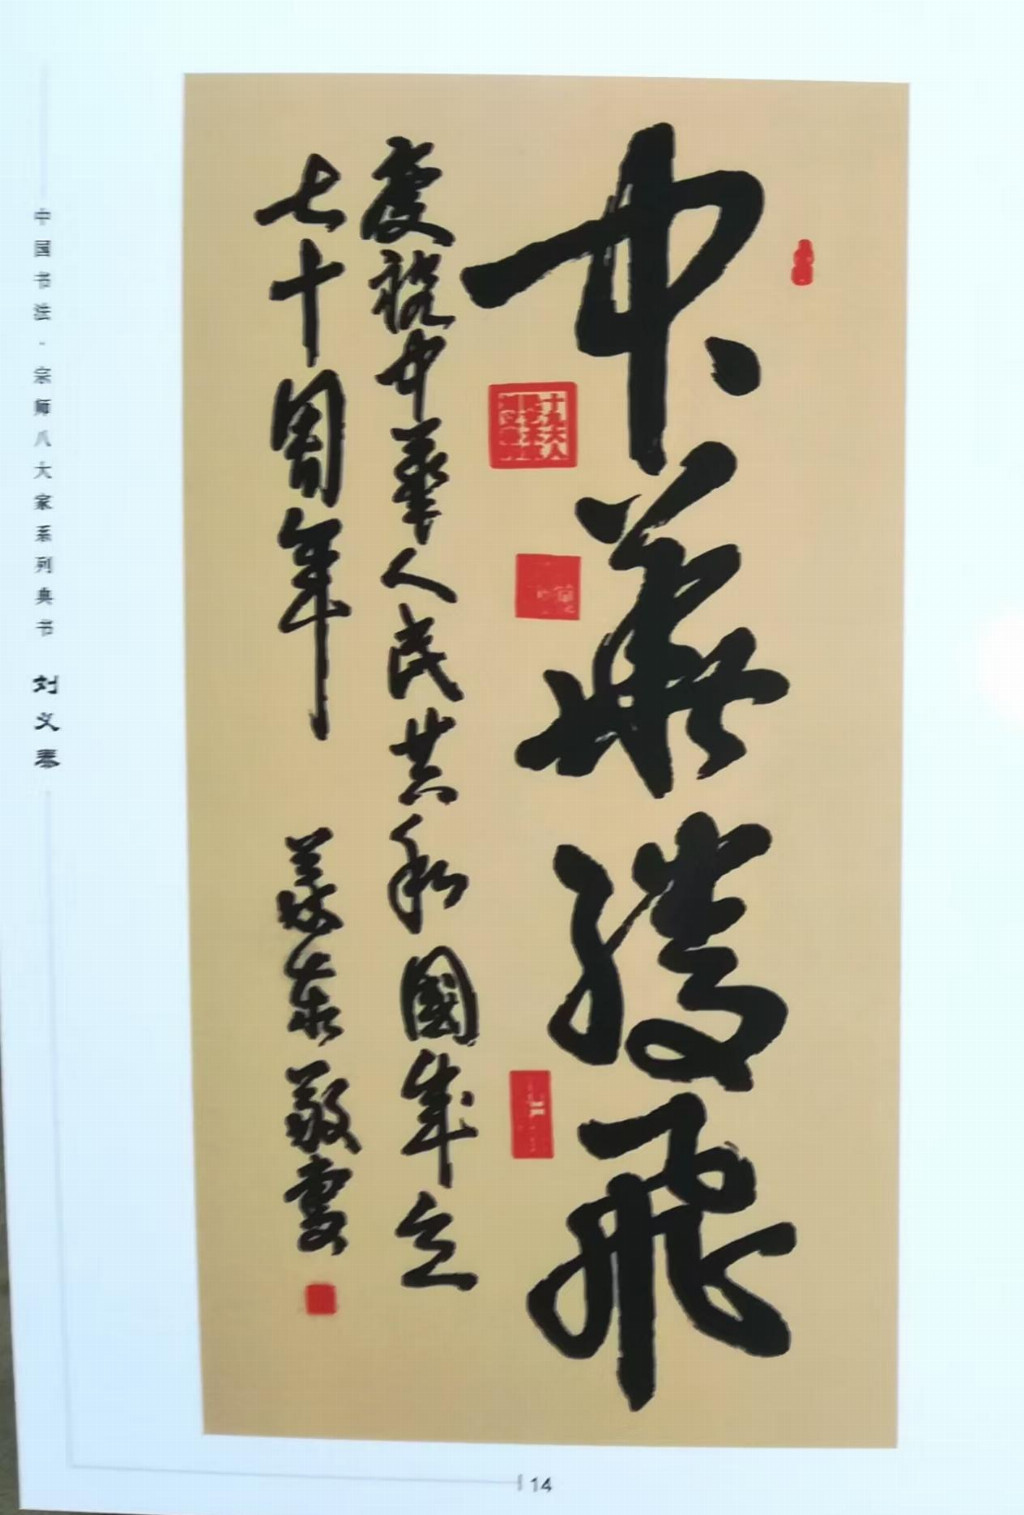 中華騰飛
慶祝中華人民共和國成立
七十周年 義泰敬書
中国书法·宗师八大家系列典书 刘义泰
14